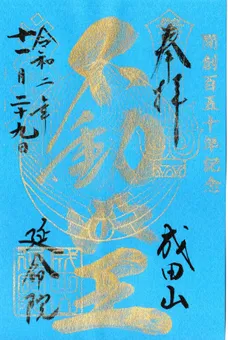 開創百五十年記念
奉拝
不動明王
成田山
令和二年
十一月二十九日
延命院